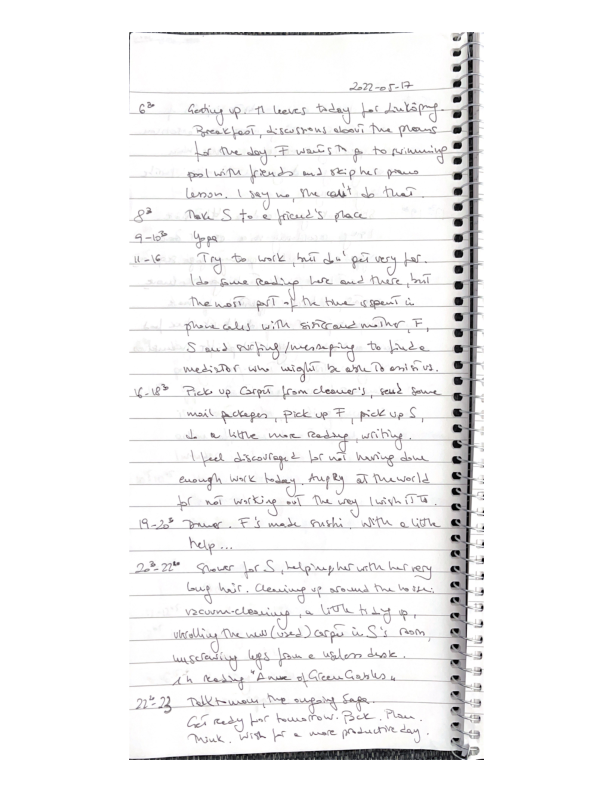 2022-05-17
6³⁰ Getting up. H leaves today for Linköping.
Breakfast, discussions about the plans
for the day. F wants to go to swimming
pool with friends and skip her piano
lesson. I say no, she can't do that.
8³⁰ Take S to a friend's place
9-10³⁰ Yoga
11-16 Try to work, but don't get very far.
I do some reading here and there, but
the most part of the time is spent in
phone calls with sister and mother, F,
S and surfing/messaging to find a
mediator who might be able to assist us.
16-18³⁰ Pick up carpet from cleaner's, send some
mail packages, pick up F, pick up S,
do a little more reading, writing.
I feel discouraged for not having done
enough work today. Angry at the world
for not working out the way I wish it to.
19-20³⁰ Dinner. F's made sushi. With a little
help...
20³⁰-22⁰⁰ Shower for S, helping her with her very
long hair. Cleaning up around the house:
vacuum-cleaning, a little tidying up,
unrolling the new (used) carpet in S's room,
unscrewing legs from a useless desk.
S in reading "Anne of Green Gables"
22⁰⁰-23 Talk to mom, the ongoing saga.
Get ready for tomorrow. Pack. Plan.
Think. Wish for a more productive day.